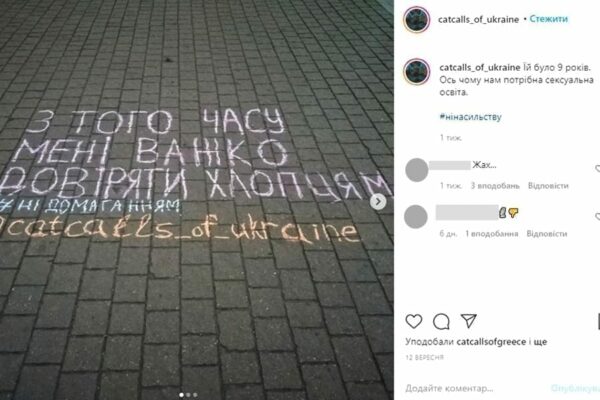 З ТОГО ЧАСУ
МЕНІ ВАЖКО
ДОВІРЯТИ ХЛОПЦЯМ
#НІДОМАГАННЯМ
@catcalls_of_ukraine
catcalls_of_ukraine • Стежити
catcalls_of_ukraine Їй було 9 років.
Ось чому нам потрібна сексуальна
освіта.
#нінасильству
1 тиж.
Жах...
1 тиж. 3 вподобань Відповісти
6 дн. 1 вподобання Відповісти
Уподобали catcallsofgreece і ще
12 ВЕРЕСНЯ
Додайте коментар...